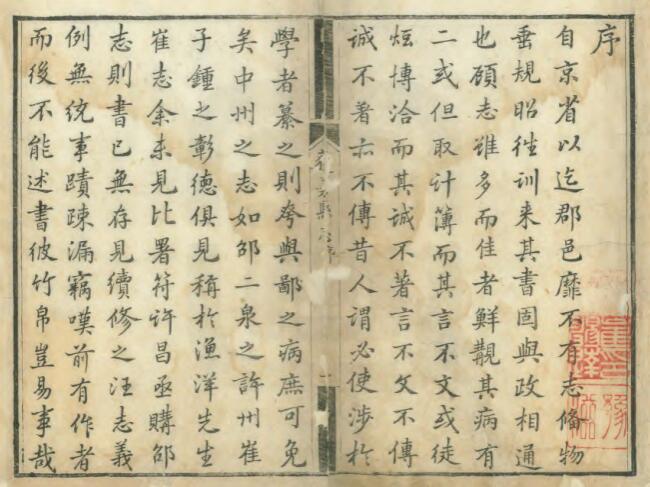 序
自京省以迄郡邑靡不有志俻物
垂規昭徃訓来其書固與政相通
也顧志雖多而佳者鮮覯其病有
二或但取计簿而其言不文或徒
炫博洽而其诚不著言不文不傳
诚不著亦不傳昔人謂必使涉於
學者纂之則夸與鄙之病庶可免
矣中州之志如邵二泉之許州崔
子鍾之彰德俱見稱於漁洋先生
崔志余未見比署符许昌亟購邵
志則書已無存見續修之汪志義
例無统事蹟踈漏竊嘆前有作者
而後不能述書彼竹帛豈易事哉